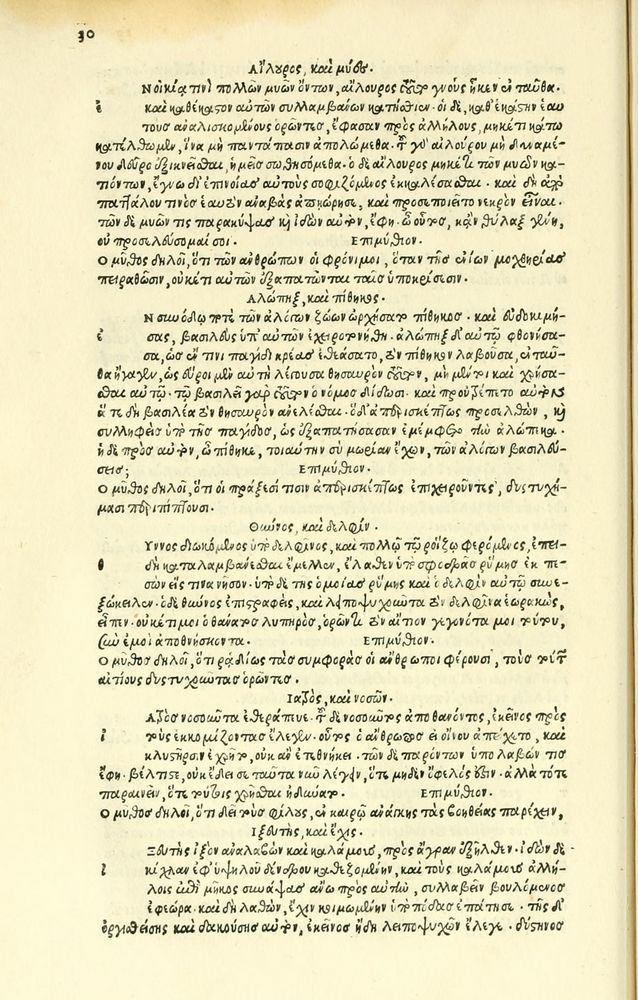 30
Αἴλουρος, καὶ μύες.
Ν οἰκίᾳ τινὶ πολλῶν μυῶν ὄντων, αἴλουρος τοῦτο γνοὺς ἧκεν ἐνταῦθα.
ἐ καὶ καθ' ἕκαστον αὐτῶν συλλαμβάνων κατήσθιεν· οἱ δὲ, καθ' ἑκάστην ἑαυ
τοὺς ἀναλισκομένους ὁρῶντες, ἔφασαν πρὸς ἀλλήλους, μηκέτι κάτω
κατέλθωμεν, ἵνα μὴ παντάπασιν ἀπολώμεθα. τοῦ γὰρ αἰλούρου μὴ δυναμέ-
νου δεῦρο ἐξικνεῖσθαι, ἡμεῖς σωθησόμεθα. ὁ δὲ αἴλουρος μηκέτι τῶν μυῶν κα-
τιόντων, ἔγνω δι' ἐπινοίας αὐτοὺς σοφιζόμενος ἐκκαλέσασθαι. καὶ δὴ ἀπὸ
παττάλου τινὸς ἑαυτὸν ἀναβὰς ἀπῃώρησε, καὶ προσεποιεῖτο νεκρὸν εἶναι.
τῶν δὲ μυῶν τις παρακύψας καὶ ἰδὼν αὐτὸν, ἔφη. ὦ οὗτος, κἂν θύλαξ γένῃ,
οὐ προσελεύσομαί σοι. Ἐπιμύθιον.
Ο μῦθος δηλοῖ, ὅτι τῶν ἀνθρώπων οἱ φρόνιμοι, ὅταν τῆς ἐνίων μοχθηρίας
πειραθῶσιν, οὐκέτι αὐτῶν ἐξαπατῶνται ταῖς ὑποκρίσεσιν.
Ἀλώπηξ, καὶ πίθηκος.
Ν συνόδῳ ποτὲ τῶν ἀλόγων ζώων ὠρχήσατο πίθηκος. καὶ εὐδοκιμή-
ἐ σας, βασιλεὺς ὑπ' αὐτῶν ἐχειροτονήθη. ἀλώπηξ δ' αὐτῷ φθονήσα-
σα, ὡς ἔν τινι παγίδι κρέας ἐθεάσατο, τὸν πίθηκον λαβοῦσα, ἐνταυ-
θα ἤγαγεν, ὡς εὕροι μὲν αὐτὴ λέγουσα θησαυρὸν τοῦτον, μὴ μέντοι καὶ χρήσα-
σθαι αὐτῷ. τῷ βασιλεῖ γὰρ τοῦτον ὁ νόμος δίδωσι. καὶ προὐτρέπετο αὐτὸν
ἅ τε δὴ βασιλέα τὸν θησαυρὸν ἀνελέσθαι. ὁ δ' ἀπερισκέπτως προσελθὼν, καὶ
συλληφθεὶς ὑπὸ τῆς παγίδος, ὡς ἐξαπατήσασαν ἐμέμφετο τὴν ἀλώπηκα.
ἡ δὲ πρὸς αὐτὸν, ὦ πίθηκε, τοιαύτην σὺ μωρίαν ἔχων, τῶν ἀλόγων βασιλεύ-
σεις; Ἐπιμύθιον.
Ο μῦθος δηλοῖ, ὅτι οἱ πράξεσί τισιν ἀπερισκέπτως ἐπιχειροῦντες, δυστυχή-
μασι περιπίπτουσι.
Θύννος, καὶ δελφίν.
Υννος διωκόμενος ὑπὸ δελφῖνος, καὶ πολλῷ τῷ ῥοίζῳ φερόμενος, ἐπει-
θ δὴ καταλαμβάνεσθαι ἔμελλεν, ἔλαθεν ὑπὸ σφοδρᾶς ῥύμης ἐκ πε-
σὼν εἴς τινα νῆσον. ὑπὸ δὲ τῆς ὁμοίας ῥύμης καὶ ὁ δελφὶν αὐτῷ συνε-
ξώκειλεν. ὁ δὲ θύννος ἐπιστραφεὶς, καὶ λειποψυχοῦντα τὸν δελφῖνα ἑωρακὼς,
εἶπεν. οὐκέτι μοι ὁ θάνατος λυπηρὸς, ὁρῶντι τὸν αἴτιον γεγονότα μοι τούτου,
σὺν ἐμοὶ ἀποθνήσκοντα. Ἐπιμύθιον.
Ο μῦθος δηλοῖ, ὅτι ῥᾳδίως τὰς συμφορὰς οἱ ἄνθρωποι φέρουσι, τοὺς τούτων
αἰτίους δυστυχοῦντας ὁρῶντες.
Ἰατρὸς, καὶ νοσῶν.
Ατρὸς νοσοῦντα ἐθεράπευε. τοῦ δὲ νοσοῦντος ἀποθανόντος, ἐκεῖνος πρὸς
ἰ τοὺς ἐκκομίζοντας ἔλεγεν. οὗτος ὁ ἄνθρωπος εἰ οἴνου ἀπείχετο, καὶ
κλυστῆρσιν ἐχρῆτο, οὐκ ἂν ἐτεθνήκει. τῶν δὲ παρόντων ὑπολαβών τις
ἔφη. βέλτιστε, οὐκ ἔδει σε ταῦτα νῦν λέγειν, ὅτε μηδὲν ὄφελός ἐστιν. ἀλλὰ τότε
παραινεῖν, ὅτε τούτοις χρῆσθαι ἠδύνατο. Ἐπιμύθιον.
Ο μῦθος δηλοῖ, ὅτι δεῖ τοὺς φίλους, ἐν καιρῷ ἀνάγκης τὰς βοηθείας παρέχειν,
Ἰξευτὴς, καὶ ἔχις.
Ξευτὴς ἰξὸν ἀναλαβὼν καὶ καλάμους, πρὸς ἄγραν ἐξῆλθεν. ἰδὼν δὲ
ἰ κίχλαν ἐφ' ὑψηλοῦ δένδρου καθεζομένην, καὶ τοὺς καλάμους ἀλλή-
λοις ἐπὶ μῆκος συνάψας ἄνω πρὸς αὐτὴν, συλλαβεῖν βουλόμενος
ἐφεώρα. καὶ δὴ λαθὼν, ἔχιν κοιμωμένην ὑπὸ πόδας ἐπάτησε. τῆς δ'
ὀργισθείσης καὶ δακούσης αὐτὸν, ἐκεῖνος ἤδη λειποψυχῶν ἔλεγε. δύστηνος